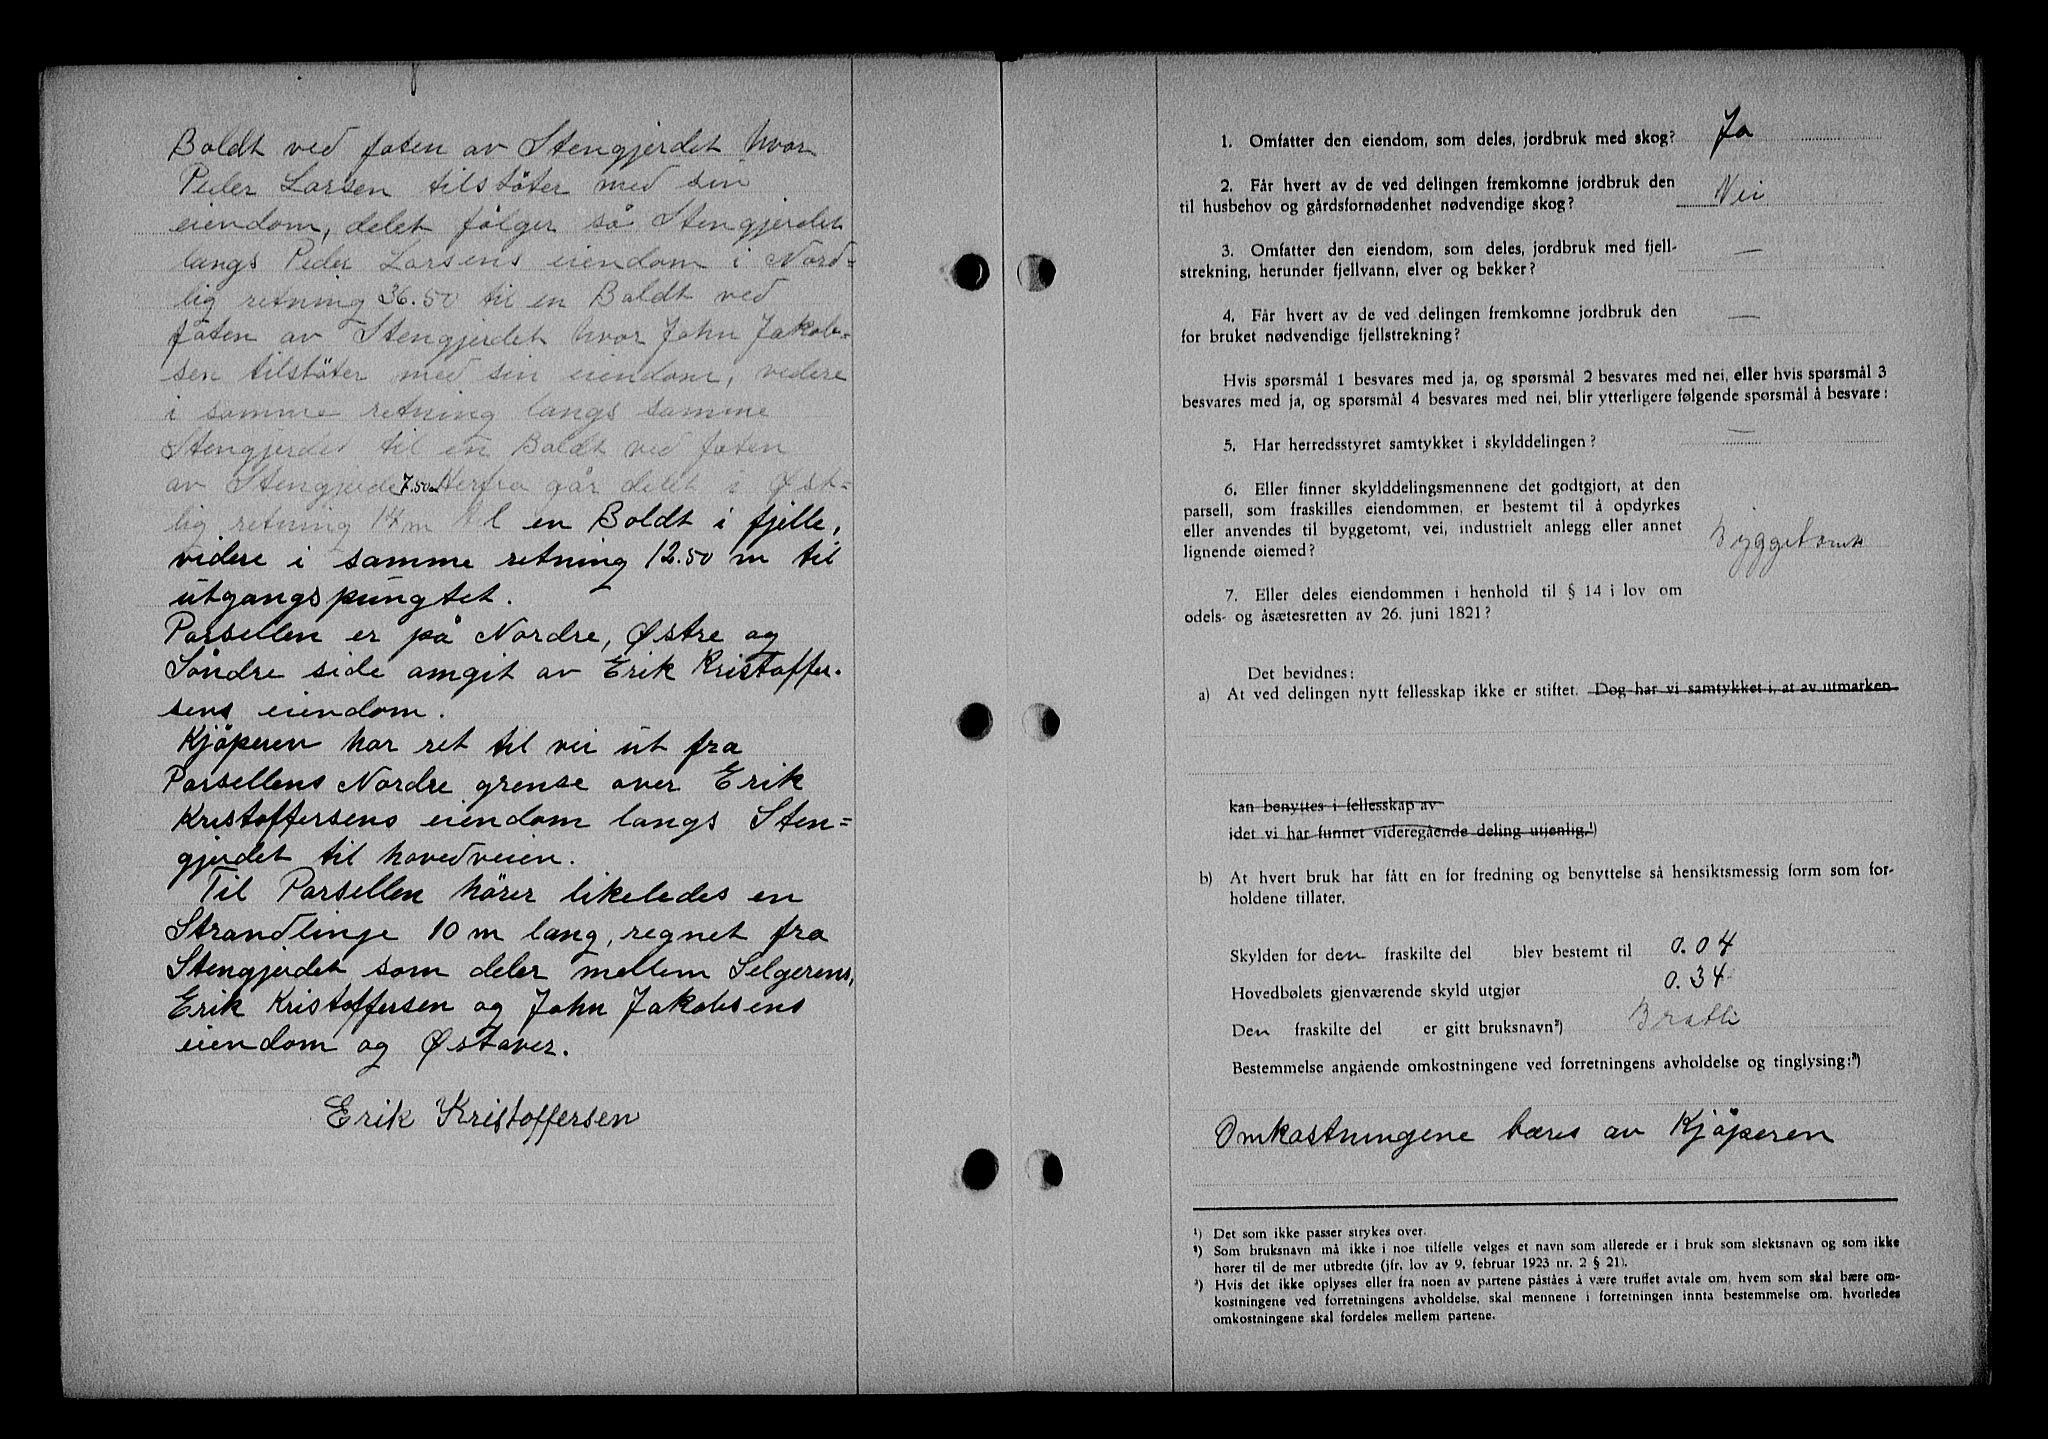 Boldt ved foten av Stengjerdet hvor
Peder Larsen tilstöter med sin
eiendom, delet følger så Stengjerdet
langs Peder Larsens eiendom i Nord=
lig retning 36.50 til en Boldt ved
foten av Stengjerdet hvor John Jakob=
sen tilstöter med sin eiendom, videre
i samme retning langs samme
Stengjerdet til en Boldt ved foten
av Stengjerde 7.50m Herfra går delet i Øst=
lig retning 14 m til en Boldt i fjelle,
videre i samme retning 12.50 m til
utgangspungtet.
Parsellen er på Nordre, Østre og
Söndre side omgit av Erik Kristoffer-
sens eiendom.
Kjöperen har ret til vei ut fra
Parsellens Nordre grense over Erik
Kristoffersens eiendom langs Sten=
gjerdet til hovedveien.
Til Parsellen hører likeledes en
Strandlinje 10 m lang, regnet fra
Stengjerdet som deler mellem Selgerens,
Erik Kristoffersen og John Jakobsens
eiendom og Østover.
Erik Kristoffersen
1. Omfatter den eiendom, som deles, jordbruk med skog? Ja
2. Får hvert av de ved delingen fremkomne jordbruk den
til husbehov og gårdsfornødenhet nødvendige skog? Nei
3. Omfatter den eiendom, som deles, jordbruk med fjell-
strekning, herunder fjellvann, elver og bekker? —
4. Får hvert av de ved delingen fremkomne jordbruk den
for bruket nødvendige fjellstrekning? —
Hvis spørsmål 1 besvares med ja, og spørsmål 2 besvares med nei, eller hvis spørsmål 3
besvares med ja, og spørsmål 4 besvares med nei, blir ytterligere følgende spørsmål å besvare:
5. Har herredsstyret samtykket i skylddelingen? —
6. Eller finner skylddelingsmennene det godtgjort, at den
parsell, som fraskilles eiendommen, er bestemt til å opdyrkes
eller anvendes til byggetomt, vei, industrielt anlegg eller annet
lignende øiemed? Byggetomt
7. Eller deles eiendommen i henhold til § 14 i lov om
odels- og åsætesretten av 26. juni 1821?
Det bevidnes:
a) At ved delingen nytt fellesskap ikke er stiftet. Dog har vi samtykket i, at av utmarken
kan benyttes i fellesskap av
idet vi har funnet videregående deling utjenlig.¹)
b) At hvert bruk har fått en for fredning og benyttelse så hensiktsmessig form som for-
holdene tillater.
Skylden for den fraskilte del blev bestemt til 0.04
Hovedbølets gjenværende skyld utgjør 0.34
Den fraskilte del er gitt bruksnavn²) Bratli
Bestemmelse angående omkostningene ved forretningens avholdelse og tinglysing:³)
Omkostningene bæres av Kjöperen
¹) Det som ikke passer strykes over.
²) Som bruksnavn må ikke i noe tilfelle velges et navn som allerede er i bruk som slektsnavn og som ikke
hører til de mer utbredte (jfr. lov av 9. februar 1923 nr. 2 § 21).
³) Hvis det ikke oplyses eller fra noen av partene påståes å være truffet avtale om, hvem som skal bære om-
kostningene ved forretningens avholdelse, skal mennene i forretningen innta bestemmelse om, hvorledes
omkostningene skal fordeles mellem partene.